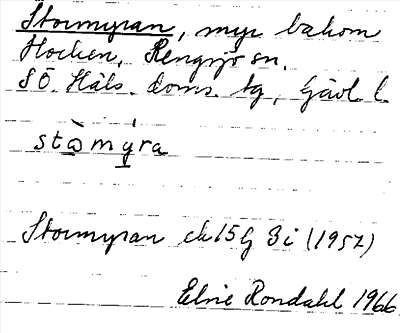 Stormyran, myr bakom
Hocken, Rengsjö sn.
SÖ. Häls. doms. tg, Gävl. l.
stɷ̀mýra
Stormyran ek 15G 3i (1957)
Elsie Rondahl 1966